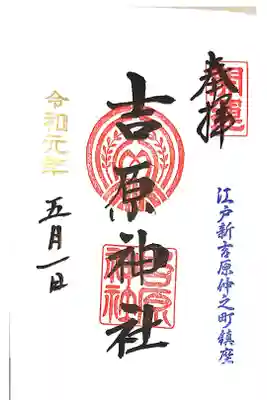 開運
奉拝
江戸新吉原仲之町鎮座
吉原神社
吉原神社
五月一日
令和元年